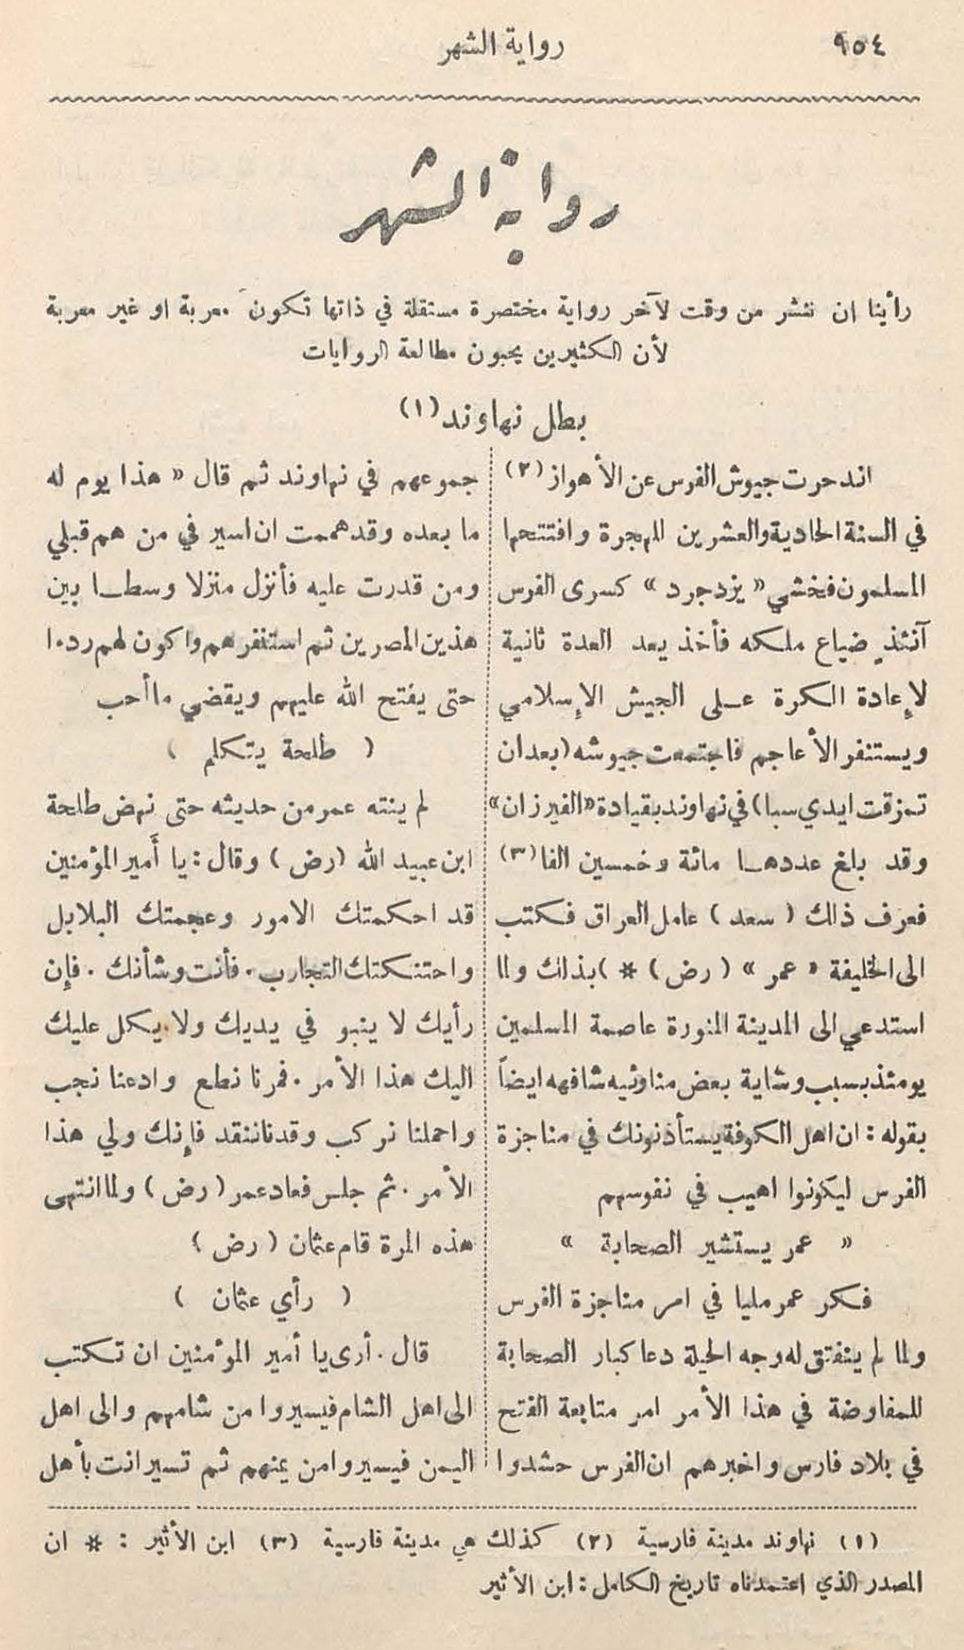 ٩٥٤
رواية الشهر
رواية الشهر
رأينا ان ننشر من وقت لآخر رواية مختصرة مستقلة في ذاتها تكون معربة او غير معربة
لأن الكثيرين يحبون مطالعة الروايات
بطل نهاوند (١)
اندحرت جيوش الفرس عن الأهواز (٢)
في السنة الحادية والعشرين للهجرة وافتتحها
المسلمون فخشي « يزدجرد » كسرى الفرس
آنئذٍ ضياع ملكه فأخذ يعد العدة ثانية
لإعادة الكرة عـلى الجيش الإسلامي
ويستنفر الأعاجم فاجتمعت جيوشه (بعد ان
تمزقت ايدي سبا) في نهاوند بقيادة «الفيرزان»
وقد بلغ عددهـا مائة وخمسين الفا (٣)
فعرف ذلك ( سعد ) عامل العراق فكتب
الى الخليفة « عمر » ( رض ) * ) بذلك ولما
استدعي الى المدينة المنورة عاصمة المسلمين
يومئذ بسبب وشاية بعض مناوئيه شافهه ايضاً
بقوله : ان اهل الكوفة يستأذنونك في مناجزة
الفرس ليكونوا اهيب في نفوسهم
« عمر يستشير الصحابة »
فكر عمر مليا في امر مناجزة الفرس
ولما لم ينفتق له وجه الحيلة دعا كبار الصحابة
للمفاوضة في هذا الأمر امر متابعة الفتح
في بلاد فارس واخبرهم ان الفرس حشدوا
جموعهم في نهاوند ثم قال « هذا يوم له
ما بعده وقد هممت ان اسير في من هم قبلي
ومن قدرت عليه فأنزل منزلا وسطـا بين
هذين المصرين ثم استنفرهم واكون لهم ردءا
حتى يفتح الله عليهم ويقضي ما أحب
( طلحة يتكلم )
لم ينته عمر من حديثه حتى نهض طلحة
ابن عبيد الله (رض ) وقال : يا أَمير المؤمنين
قد احكمتك الامور وعجمتك البلابل
واحتنكتك التجارب . فأنت وشأنك . فإن
رأيك لا ينبو في يديك ولا يكل عليك
اليك هذا الأمر . فمرنا نطع وادعنا نجب
واحملنا نركب وقدنا ننقد فإنك ولي هذا
الأمر . ثم جلس فعاد عمر ( رض ) ولما انتهى
هذه المرة قام عثمان ( رض )
( رأي عثمان )
قال . أرى يا أمير المؤمنين ان تكتب
الى اهل الشام فيسيروا من شامهم والى اهل
اليمن فيسيروا من يمنهم ثم تسير انت بأهل
(١) نهاوند مدينة فارسية (٢) كذلك هي مدينة فارسية (٣) ابن الأثير : * ان
المصدر الذي اعتمدناه تاريخ الكامل : ابن الأثير